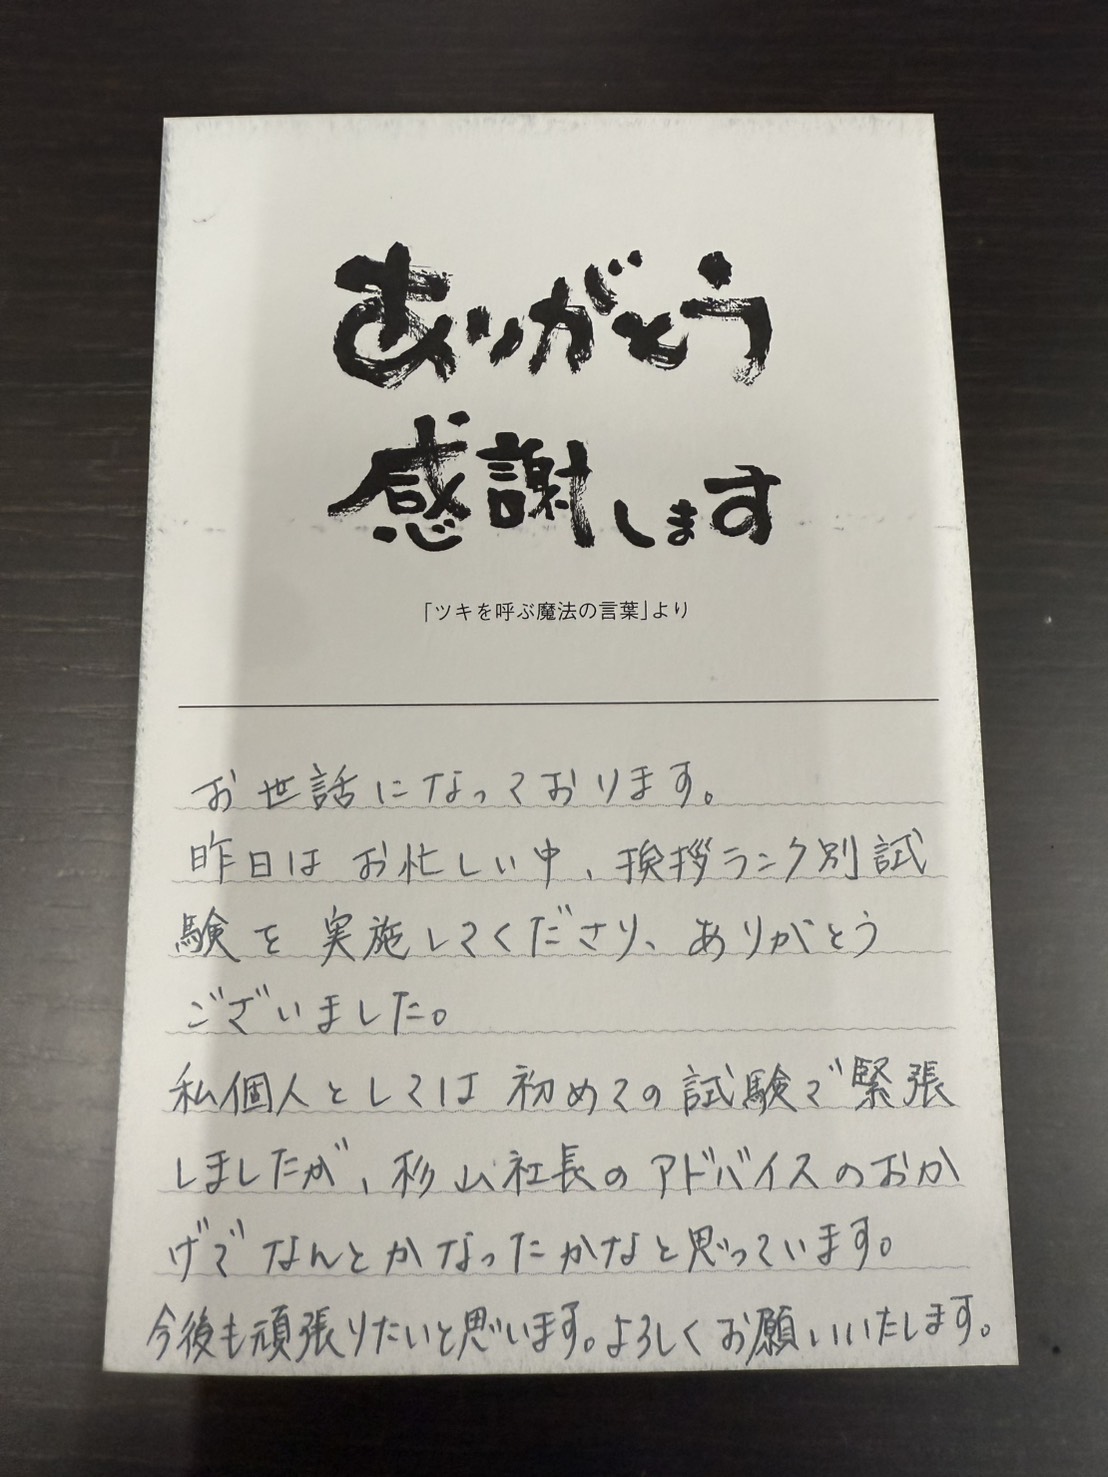 ありがとう
感謝します
「ツキを呼ぶ魔法の言葉」より
お世話になっております。
昨日はお忙しい中、挨拶ランク別試
験を実施してくださり、ありがとう
ございました。
私個人としては初めての試験で緊張
しましたが、杉山社長のアドバイスのおか
げでなんとかなったかなと思っています。
今後も頑張りたいと思います。よろしくお願いいたします。